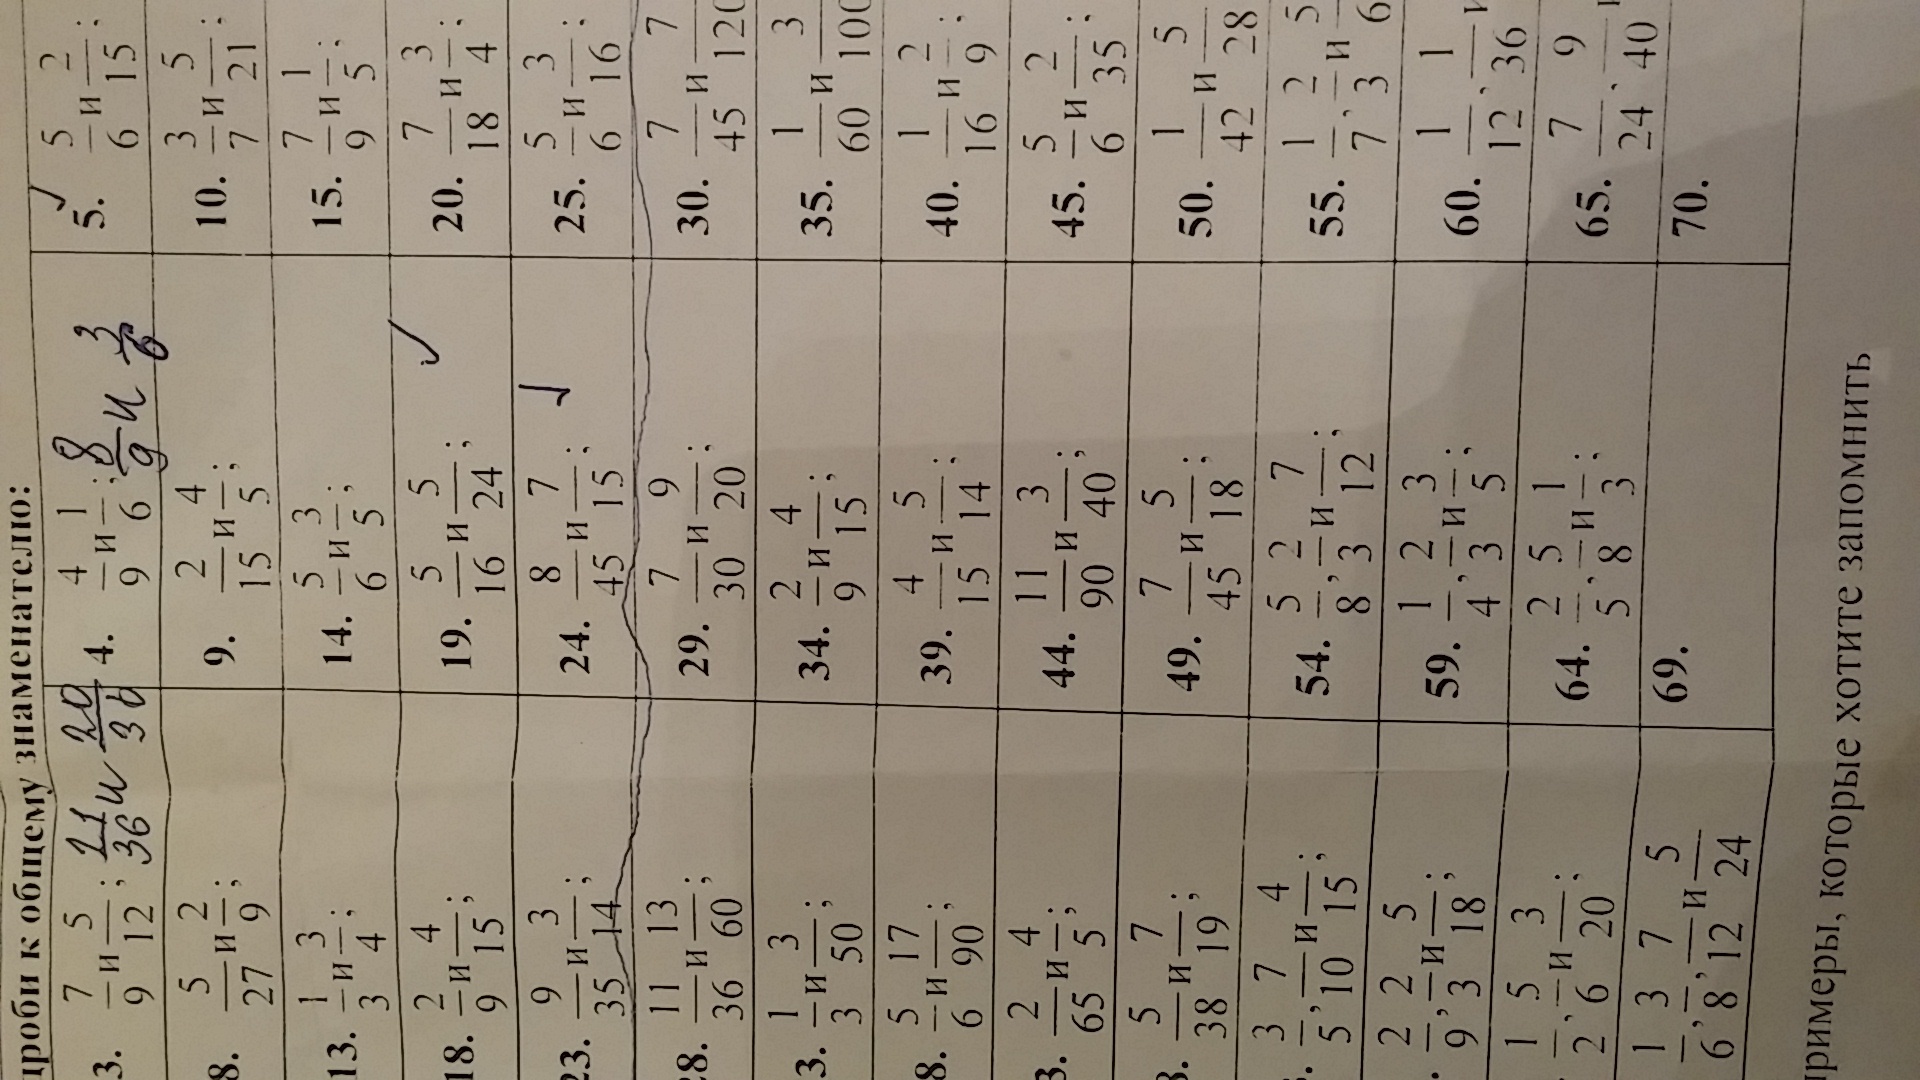 дроби к общему знаменателю:
3. 7/9 и 5/12; 21/36 и 20/36 4. 4/9 и 1/6; 8/9 и 3/6 5. 5/6 и 2/15;
8. 5/27 и 2/9; 9. 2/15 и 4/5; 10. 3/7 и 5/21;
13. 1/3 и 3/4; 14. 5/6 и 3/5; 15. 7/9 и 1/5;
18. 2/9 и 4/15; 19. 5/16 и 5/24; 20. 7/18 и 3/4;
23. 9/35 и 3/14; 24. 8/45 и 7/15; 25. 5/6 и 3/16;
28. 11/36 и 13/60; 29. 7/30 и 9/20 30. 7/45 и 7/120
3. 1/3 и 3/50; 34. 2/9 и 4/15; 35. 1/60 и 3/100
8. 5/6 и 17/90; 39. 4/15 и 5/14; 40. 1/16 и 2/9;
3. 2/65 и 4/5; 44. 11/90 и 3/40; 45. 5/6 и 2/35;
8. 5/38 и 7/19; 49. 7/45 и 5/18; 50. 1/42 и 5/28
3/5, 7/10 и 4/15; 54. 5/8, 2/3 и 7/12; 55. 1/7, 2/3 и 5/6
2/9, 2/3 и 5/18; 59. 1/4, 2/3 и 3/5; 60. 1/12, 1/36 и
1/2, 5/6 и 3/20; 64. 2/5, 5/8 и 1/3; 65. 7/24, 9/40 и
1/6, 3/8, 7/12 и 5/24 69. 70.
примеры, которые хотите запомнить